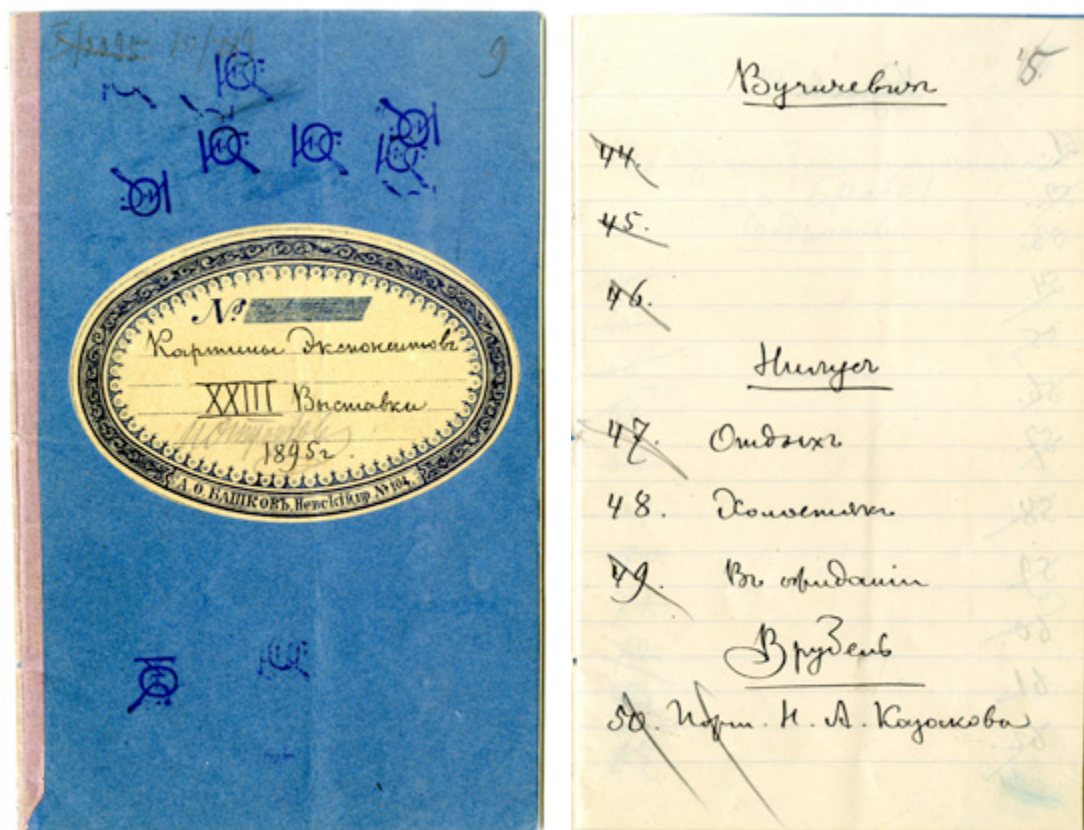 9
№
Картины Экспонентовъ
XXIII Выставки
1895 г.
А. О. БАШКОВЪ, Невскій пр. № 104.
15
Вучичевичъ
44.
45.
46.
Нилусъ
47. Отдыхъ
48. Холостякъ
49. Въ ожиданіи
Врубель
50. Порт. Н. А. Казакова